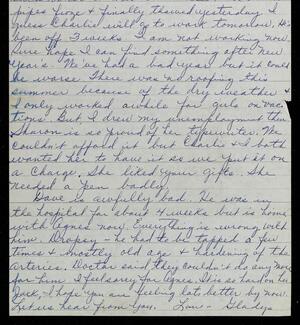 pipes from & finally thawed yesterday I
guess Charlie will go to work tomorrow. He's
been off 3 weeks I am not working now
Sure hope I can find something after New
Year's. We've had a bad year but it could
be worse There was no roofing this
summer because of the dry weather &
I only worked awhile for girls on vac
tions. But I drew my unemployment then
Sharon is so proud of her typewriter. We
couldn't afford it but Charlie & I both
wanted her to have it so we put it on
a Charge. She liked your gifts. She
needed a pen badly.
Dave is awfully bad. He was in
the hospital for about 4 weeks but is home
with Agnes now. Everything is wrong with
him Dropsy - he had to be tapped a few
times & mostly old age & hardening of the
arteries. Doctor said they couldn't do any more
for him I feel sorry for Agnes. It is so hard on her
Jack, I hope you are feeling lots better by now.
Let us hear from you. Love - Gladys